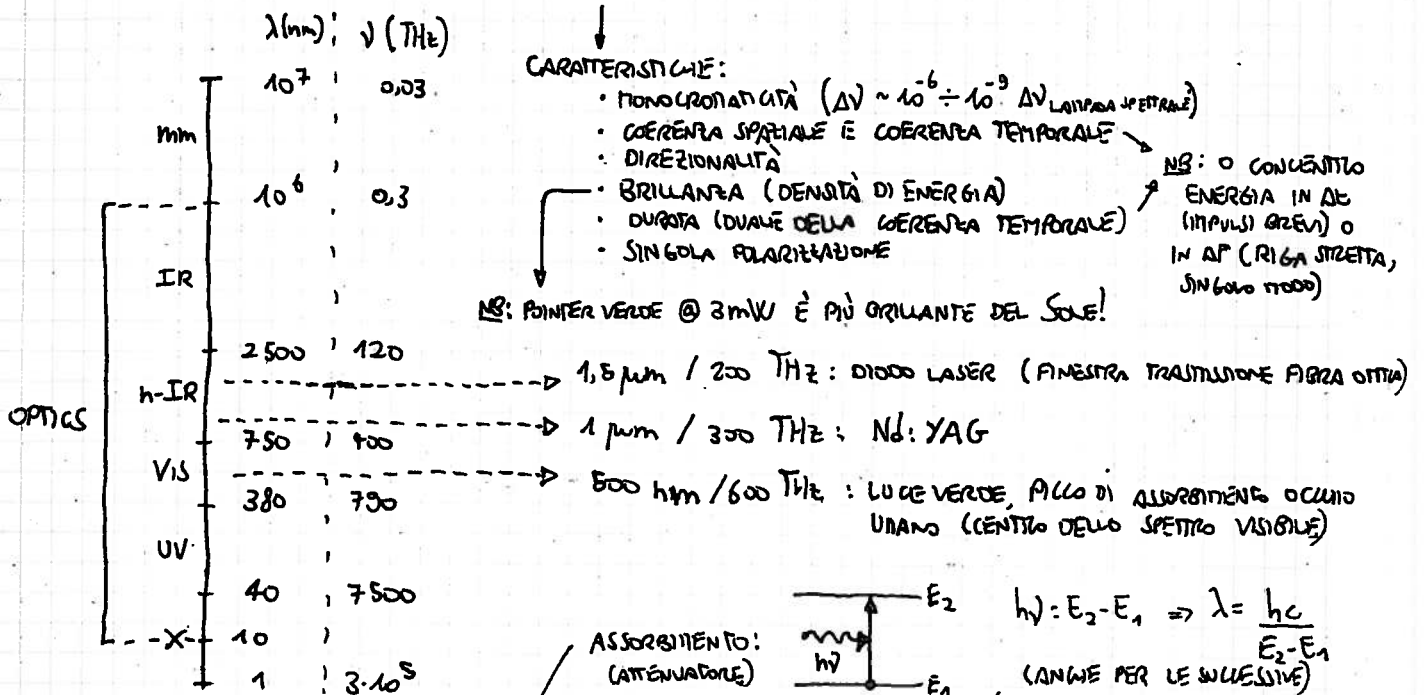 λ(nm) ν (THz)
10⁷ 0,03
mm
10⁶ 0,3
IR
2500 120
n-IR
OPTICS
750 400
VIS
380 790
UV
40 7500
X 10
1 3·10⁵
CARATTERISTICHE:
· MONOCROMATICITÀ (Δν ~ 10⁻⁶ ÷ 10⁻⁹ Δν LAMPADA SPETTRALE)
· COERENZA SPAZIALE E COERENZA TEMPORALE
· DIREZIONALITÀ
· BRILLANZA (DENSITÀ DI ENERGIA)
· DURATA (DUALE DELLA COERENZA TEMPORALE)
· SINGOLA POLARIZZAZIONE
NB: O CONCENTRO
ENERGIA IN Δt
(IMPULSI BREVI) O
IN Δν (RIGA STRETTA,
SINGOLO MODO)
NB: POINTER VERDE @ 3mW È PIÙ BRILLANTE DEL SOLE!
1,5 μm / 200 THz : DIODO LASER (FINESTRA TRASMISSIONE FIBRA OTTICA)
1 μm / 300 THz : Nd:YAG
500 nm / 600 THz : LUCE VERDE, PICCO DI ASSORBIMENTO OCCHIO
UMANO (CENTRO DELLO SPETTRO VISIBILE)
ASSORBIMENTO:
(ATTENUATORE)
hν
E₂
E₁
hν = E₂-E₁ => λ = hc / E₂-E₁
(ANCHE PER LE SUCCESSIVE)